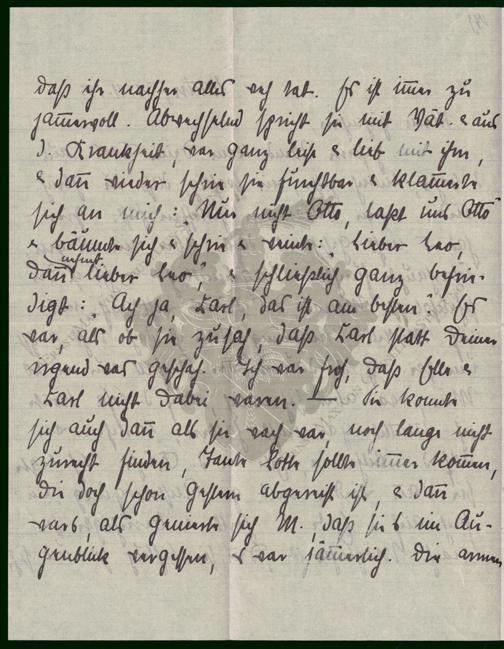 daß ihr nachher alles weh tat. Es ist im̅er zu
jam̅ervoll. Abwechselnd spricht sie mit Vät. & aus
d. Krankheit, war ganz leise & lieb mit ihm,
& dan̅ wieder schrie sie furchtbar & klam̅erte
sich an mich: "Nur nicht Otto, laßt uns Otto"
& bäumte sich & schrie & weinte: "Lieber Leo,
nehmt
dan̅ lieber Leo", & schließlich ganz befrie-
digt: "Ach ja, Karl, das ist am besten". Es
war, als ob sie zusah, daß Karl statt Deiner
irgend was geschah. Ich war froh, daß &
Karl nicht dabei waren. — Sie konnte
sich auch dan̅ als sie wach war, noch lange nicht
zurecht finden, Tante Lotte sollte im̅er kom̅en,
die doch schon gestern abgereist ist, & dan̅
war's, als genierte sich M., daß sie's im Au-
genblick vergessen, es war jäm̅erlich. Die armen